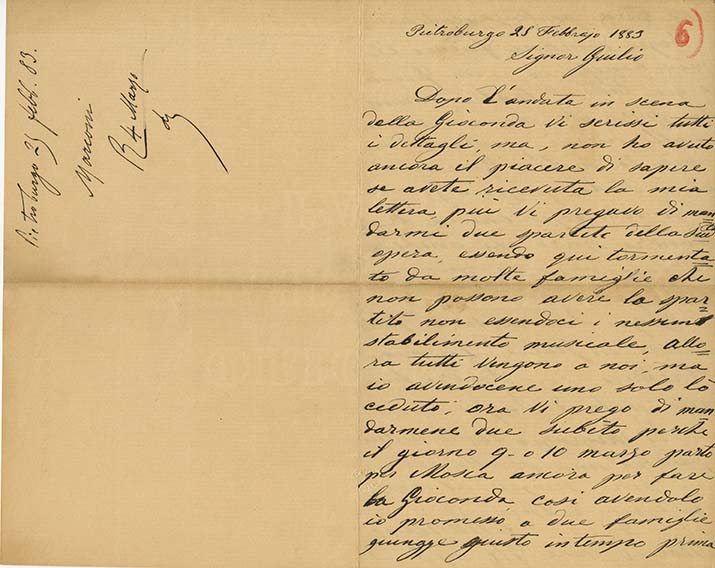 Pietroburgo 25 febb. 83.
Marconi
R 4 Marzo
6
Pietroburgo 25 Febbrajo 1883
Signor Giulio
Dopo l'andata in scena
della Gioconda vi scrissi tutti
i dettagli, ma, non ho avuto
ancora il piacere di sapere
se avete ricevuta la mia
lettera, più vi pregavo di man=
darmi due spartiti della
opera, essendo qui tormenta=
to da molte famiglie che
non possono avere lo spar=
tito non essendoci i nessun
stabilimento musicale, allo=
ra tutti vengono a noi, ma
io avendocene uno solo lò
ceduto, ora vi prego di man=
darmene due subito perchè
il giorno 9- o 10 marzo parto
per Mosca ancora per fare
la Gioconda così avendolo
io promesso a due famiglie
giungge giusto in tempo prima